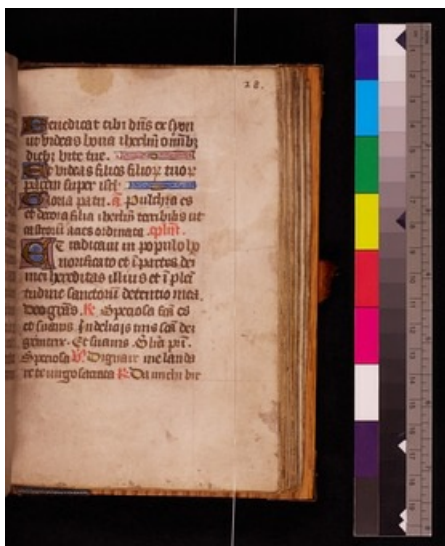 28.
Benedicat tibi dn̄s ex syon
ut videas bona iherlm̄ omnibꝫ
diebꝫ vite tue.
Et videas filios filioꝝ tuoꝝ
pacem super isrl̄.
Gloria patri. a̅. Pulchra es
et decora filia iherlm̄ terribilis ut
castroꝝ acies ordinata. cplm̄.
ET radicavi in populo ho
norificato et ī partes dei
mei hereditas illius et ī plei
tudine sanctorū detentio mea.
Deo grās. R̄ Speciosa fcā es
et suavis. In delicijs tuis scā dei
genitrix. Et suavis. Glīa pr̄i.
Speciosa V̄ Dignare me lauda
re te virgo sacrata R̄ Da michi vir